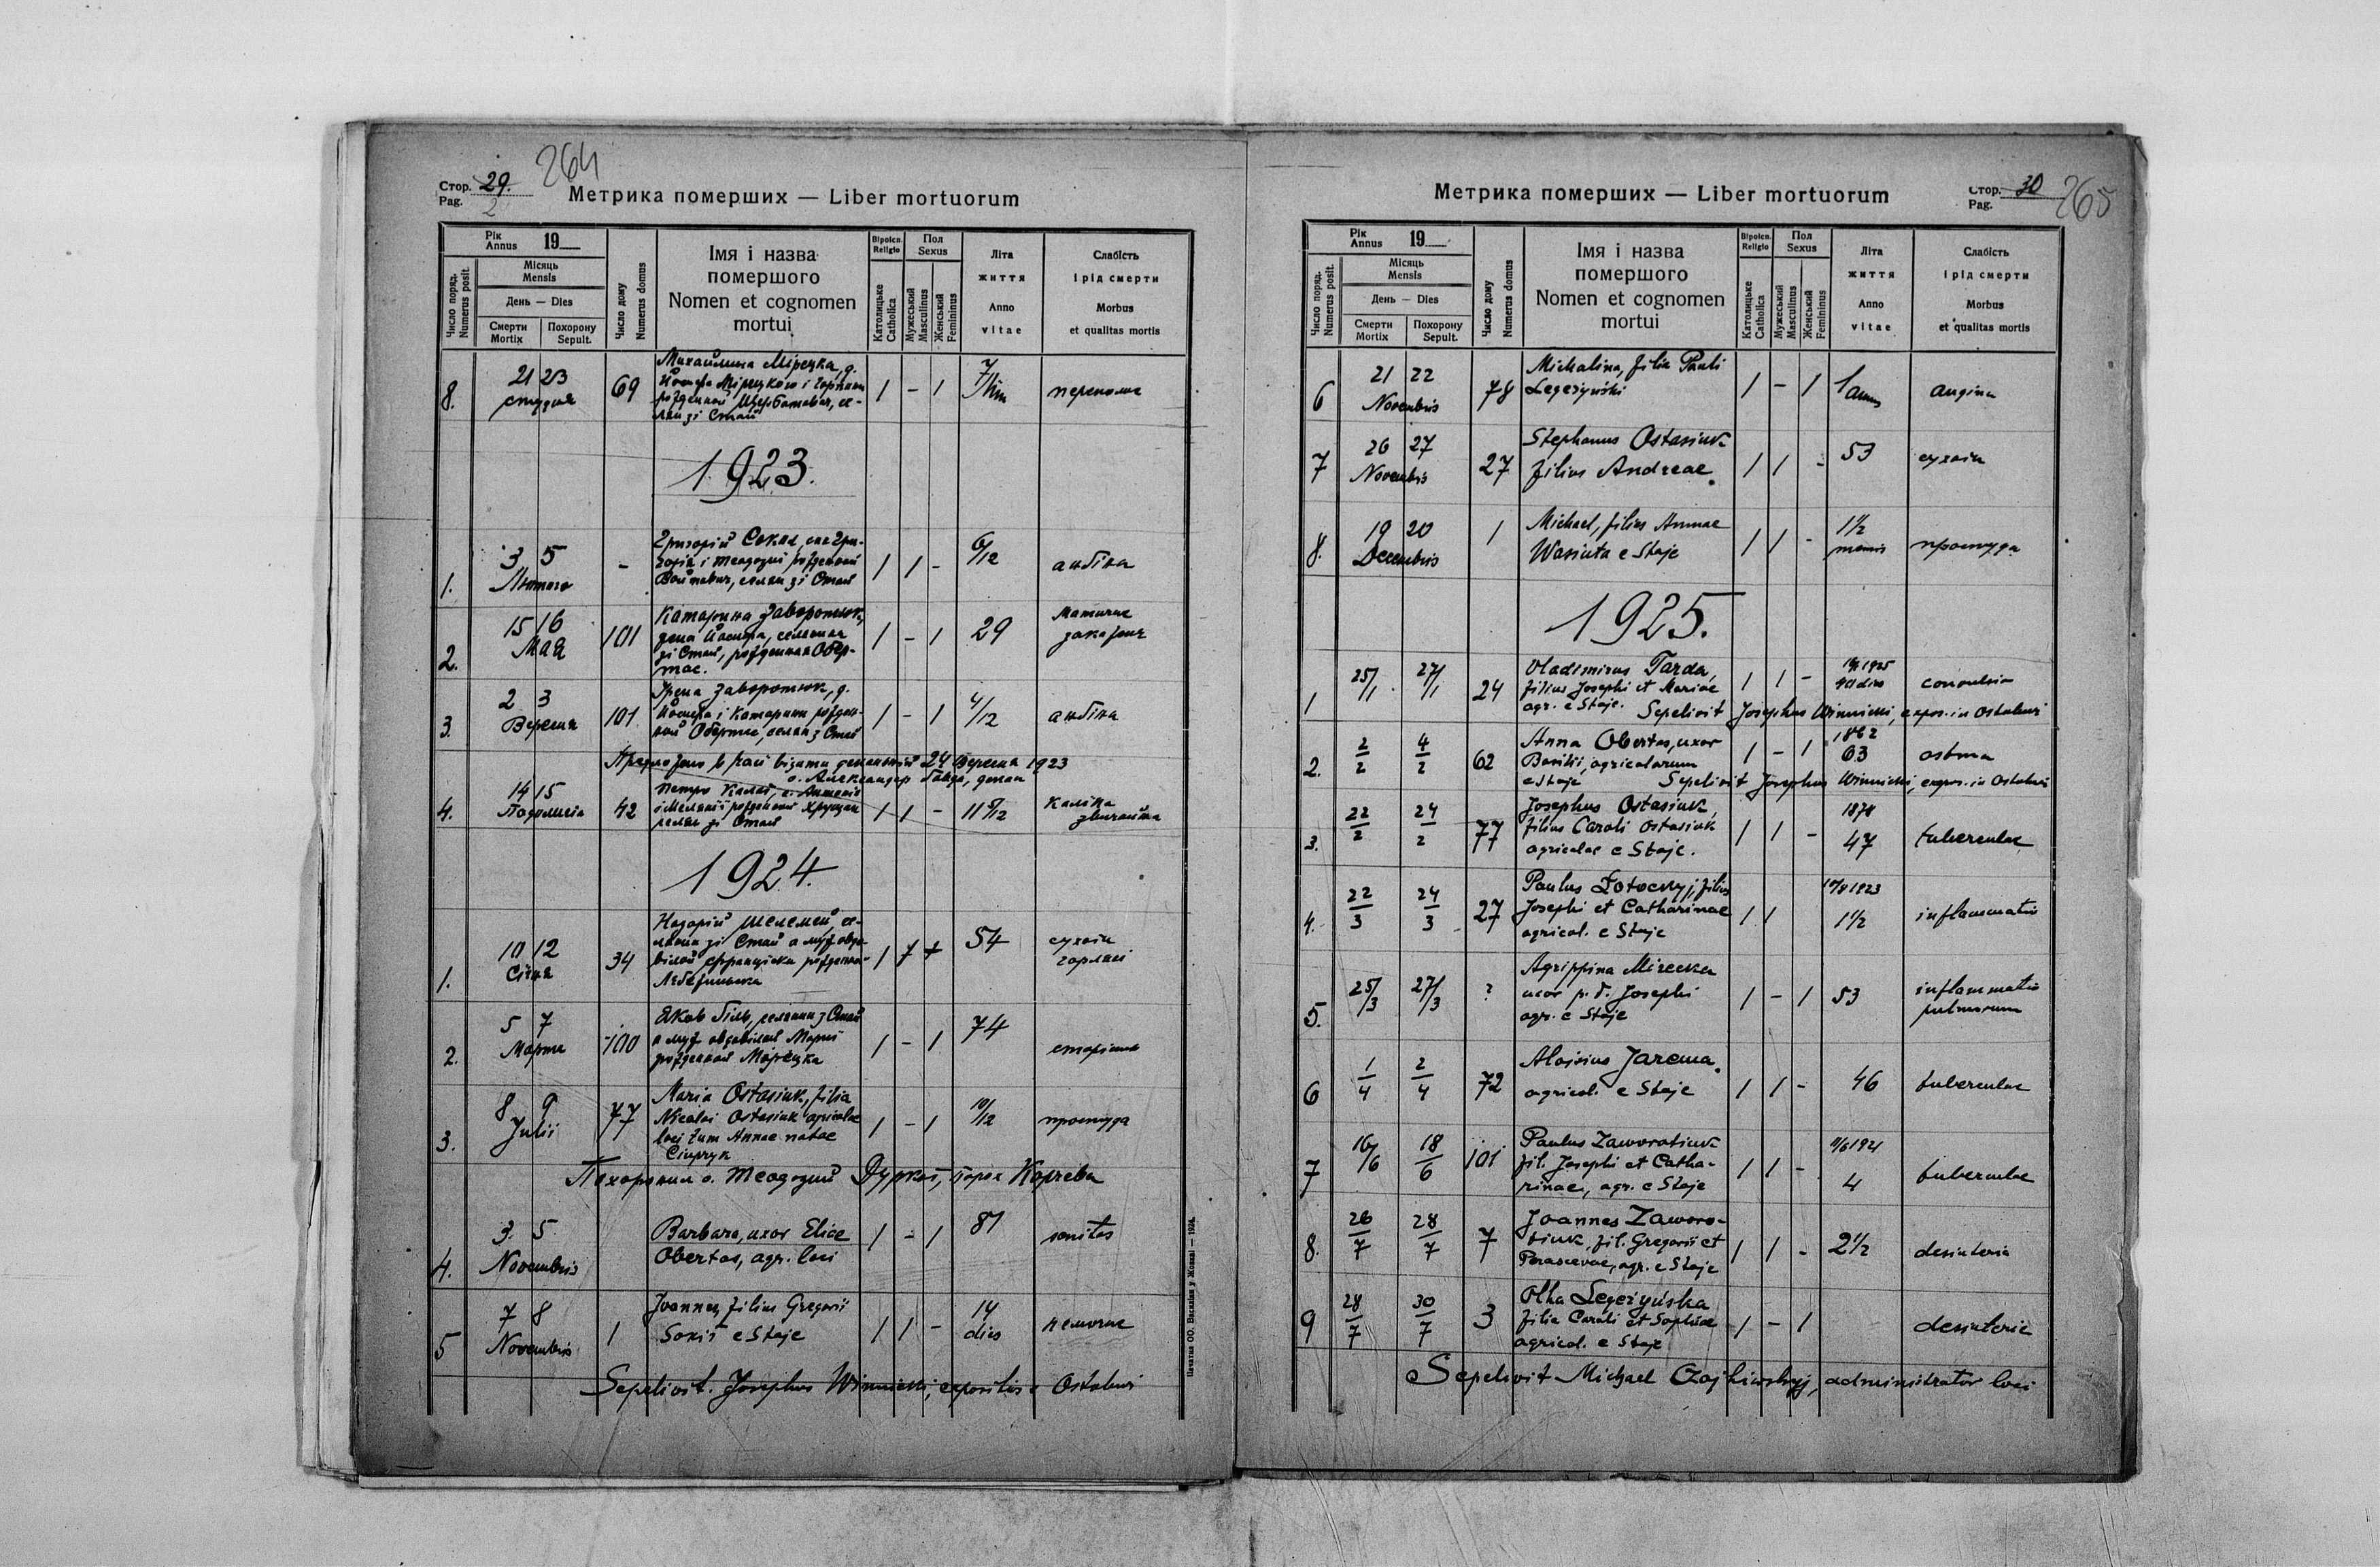 Стор. 29.
Pag. 2
264
Метрика померших — Liber mortuorum
Рік
Annus 19
Місяць
Mensis
День — Dies
Число поряд.
Numerus posit.
Смерти
Mortix
Похорону
Sepult.
Число дому
Numerus domus
Імя і назва
помершого
Nomen et cognomen
mortui
Віроісп.
Religio
Католицьке
Catholica
Пол
Sexus
Мужеський
Masculinus
Женський
Femininus
Літа
життя
Anno
vitae
Слабість
і рід смерти
Morbus
et qualitas mortis
8.
21 23
студня
69
Михайлина Мірецка, д.
Йосифа Мірецкого і
рожденної Щербатович, се-
лян зі Стаї
1 - 1
7
1923.
1.
3 5
Лютого
-
Григорій Сокил, син Гри-
горія і Теодозії рожденної
Войтович, селян зі Стаї
1 1 -
6/12
анґіна
2.
15 16
Мая
101
Катарина Заворотюк,
жена Йосифа, селянина
зі Стаї, рожденная Обер-
тас.
1 - 1
29
3.
2 3
Вересня
101
Ірена Заворотюк, д.
Йосифа і Катарини рожден-
ної Обертас, селян з Стаї
1 - 1
4/12
анґіна
24 Вересня 1923
о. Александер
4.
14 15
42
Петро
рожденної
селян зі Стаї
1 1 -
11 5/12
1924.
1.
10 12
Січня
34
Назарій Шелемей, се-
лянин зі Стаї а муж овдо-
вілий Францішки рожденної
1
54
сухоти
2.
5 7
Марта
100
Яков Гіль, селянин з Стаї
а муж овдовілий Марії
рожденної Мірецка
1 - 1
74
3.
8 9
Julii
77
Maria Ostasiuk, filia
Nicolai Ostasiuk agricolae
loci tum Annae natae
1 - 1
10/12
простуда
Похоронил о. Теодозий Дуркот, парох Корчева
4.
3. 5
Novembris
Barbara, uxor Eliae
Obertas, agr. loci
1 - 1
81
5
7 8
Novembris
1
Joannes, filius Gregorii
e Staje
1 1 -
14
dies
Sepelivit. Josephus Winnicki,
Печатня ОО. Василіян у Жовкві — 1924.
Метрика померших — Liber mortuorum
Стор. 30
Pag.
265
Рік
Annus 19
Місяць
Mensis
День — Dies
Число поряд.
Numerus posit.
Смерти
Mortix
Похорону
Sepult.
Число дому
Numerus domus
Імя і назва
помершого
Nomen et cognomen
mortui
Віроісп.
Religio
Католицьке
Catholica
Пол
Sexus
Мужеський
Masculinus
Женський
Femininus
Літа
життя
Anno
vitae
Слабість
і рід смерти
Morbus
et qualitas mortis
6
21 22
Novembris
78
Michalina, filia Pauli
Legeżyński
1 - 1
1 annus
angina
7
26 27
Novembris
27
Stephanus Ostasiuk
filius Andreae.
1 1 -
53
сухоти
8.
19 20
Decembris
1
Michael, filius Annae
Wasiuta e Staje
1 1 -
1 1/2
простуда
1925.
1
25/1. 27/1
24
Vladimirus Tarda,
filius Josephi et Mariae
agr. e Staje.
1 1 -
dies
convulsio
Sepelivit Josephus Winnicki, expos. in
2.
2/2 4/2
62
Anna Obertas, uxor
Basilii, agricolarum
e Staje
1 - 1
1862
63
astma
Sepelivit Josephus Winnicki, expos. in
3.
22/2 24/2
77
Josephus Ostasiuk,
filius Caroli Ostasiuk
agricolae e Staje.
1 1 -
1878
47
tuberculae
4.
22/3 24/3
27
Paulus Łotockyj, filius
Josephi et Catharinae
agricol. e Staje
1 1
1923
1 1/2
inflammatio
5.
25/3 27/3
?
Agrippina Mirecka
uxor p. d. Josephi
agr. e Staje
1 - 1
53
inflammatio
pulmorum
6
1/4 2/4
72
Aloisius Jarema.
agricol. e Staje
1 1 -
46
tuberculae
7
16/6 18/6
101
Paulus Zaworotiuk
fil. Josephi et Catha-
rinae, agr. e Staje
1 1 -
11/6 1921
4
tuberculae
8.
26/7 28/7
7
Joannes Zaworo-
tiuk, fil. Gregorii et
Parascevae, agr. e Staje
1 1 -
2 1/2
desinteria
9
28/7 30/7
3
Olha Legeżyńska
filia Caroli et Sophiae
agricol. e Staje
1 - 1
desinterie
Sepelivit Michael Czajkiwskyj, administrator loci